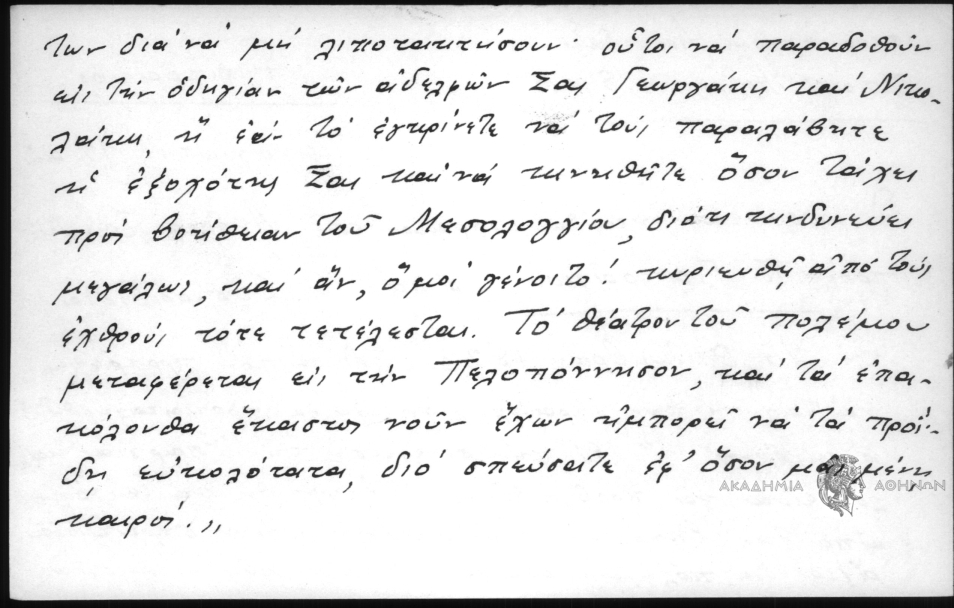 των διὰ νὰ μὴ λιποτακτήσουν· οὗτοι νὰ παραδοθοῦν
εἰς τὴν ὁδηγίαν τῶν ἀδελφῶν Σας Γεωργάκη καὶ Νικο-
λάκη, ἢ ἐὰν τὸ ἐγκρίνετε νὰ τοὺς παραλάβητε
ἡ ἐξοχότης Σας καὶ νὰ κινηθῆτε ὅσον τάχει
πρὸς βοήθειαν τοῦ Μεσολογγίου, διότι κινδυνεύει
μεγάλως, καὶ ἄν, ὅ μοι γένοιτο! κυριευθῇ ἀπὸ τοὺς
ἐχθροὺς τότε τετέλεσται. Τὸ θέατρον τοῦ πολέμου
μεταφέρεται εἰς τὴν Πελοπόννησον, καὶ τὰ ἐπα-
κόλουθα ἕκαστος νοῦν ἔχων ἠμπορεῖ νὰ τὰ προΐ-
δῃ εὐκολότατα, διὸ σπεύσατε ἐφ' ὅσον μᾶς μένει
καιρός.,,
ΑΚΑΔΗΜΙΑ ΑΘΗΝΩΝ